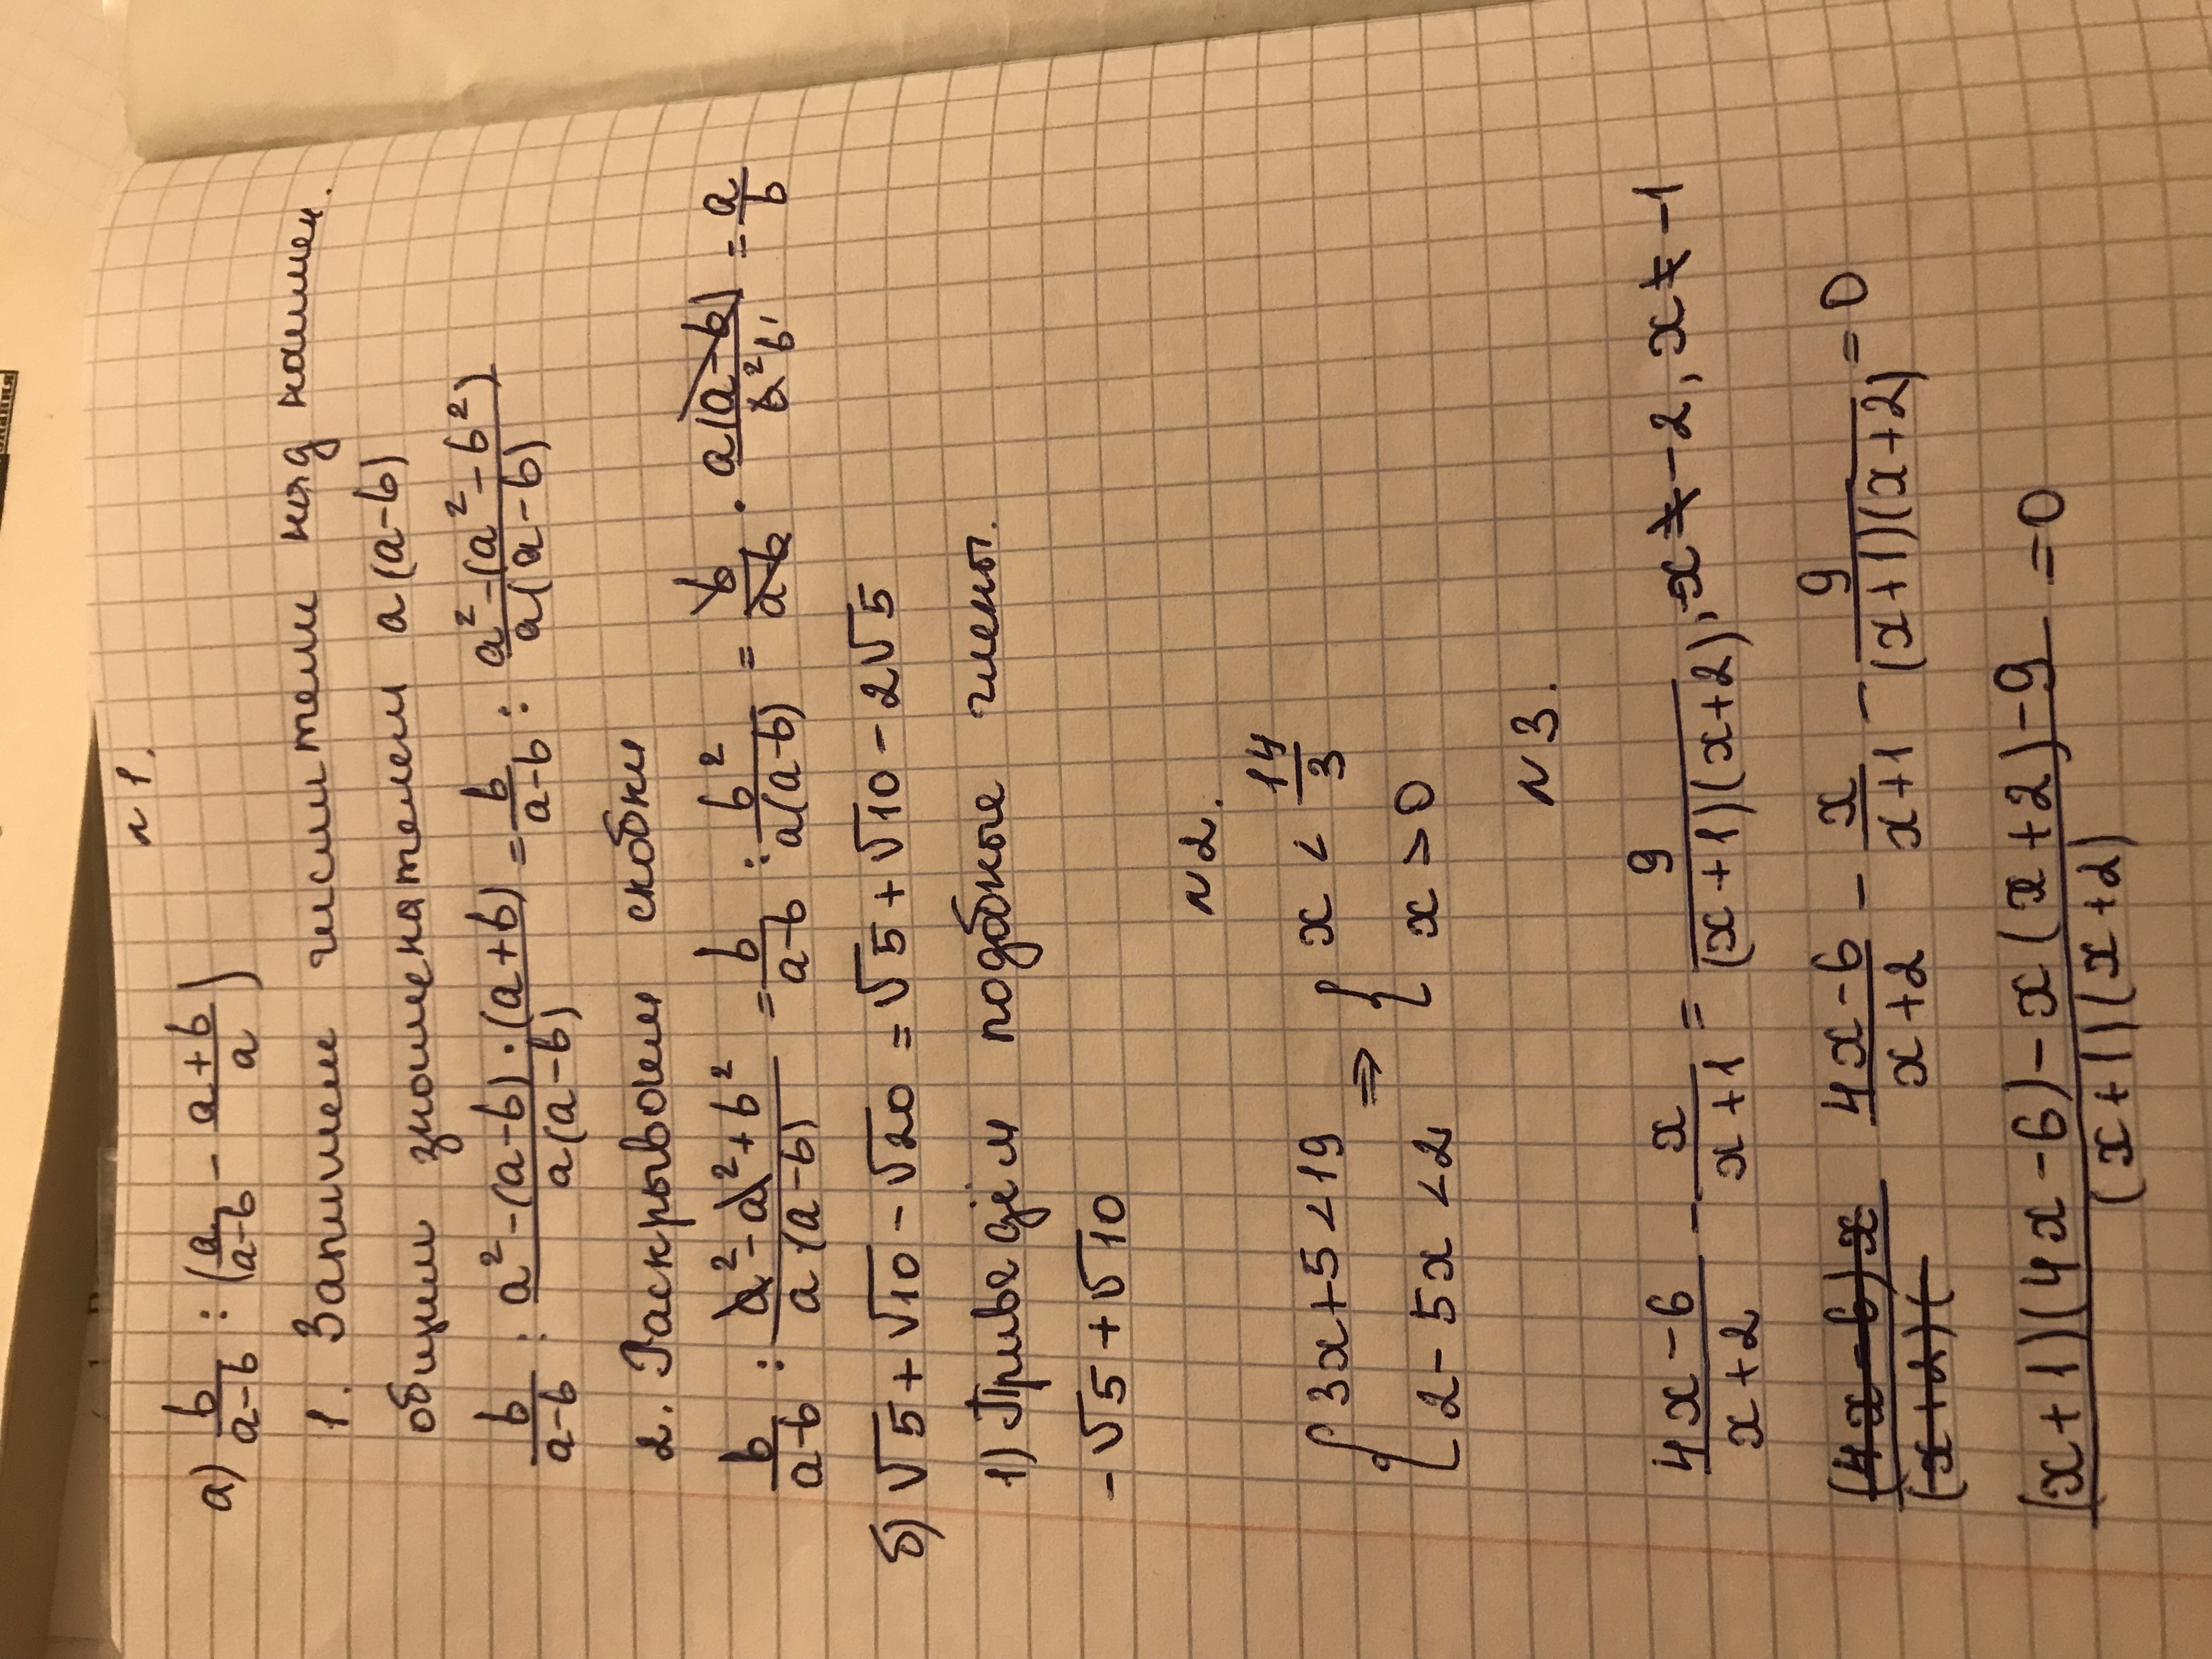 N 1.
а) b/(a-b) : (a/(a-b) - (a+b)/a)
1. Запишем числители над наимен.
общим знаменателем a(a-b)
b/(a-b) : (a² -(a-b)·(a+b))/(a(a-b)) = b/(a-b) : (a² -(a² - b²))/(a(a-b))
2. Раскрываем скобки
b/(a-b) : (a² - a² + b²)/(a·(a-b)) = b/(a-b) : b²/(a(a-b)) = b/(a-b) · a(a-b)/b² = a/b
б) √5 + √10 - √20 = √5 + √10 - 2√5
1) Приведём подбные члены.
-√5 + √10
N 2.
{3x+5<19 ⇒ {x < 14/3
{2-5x<2 {x>0
N 3.
(4x-6)/(x+2) - x/(x+1) = 9/((x+1)(x+2)), x≠-2, x≠-1
(4x-6)x/(x+2)( (4x-6)/(x+2) - x/(x+1) - 9/((x+1)(x+2)) = 0
((x+1)(4x-6)-x(x+2)-9)/((x+1)(x+2)) = 0